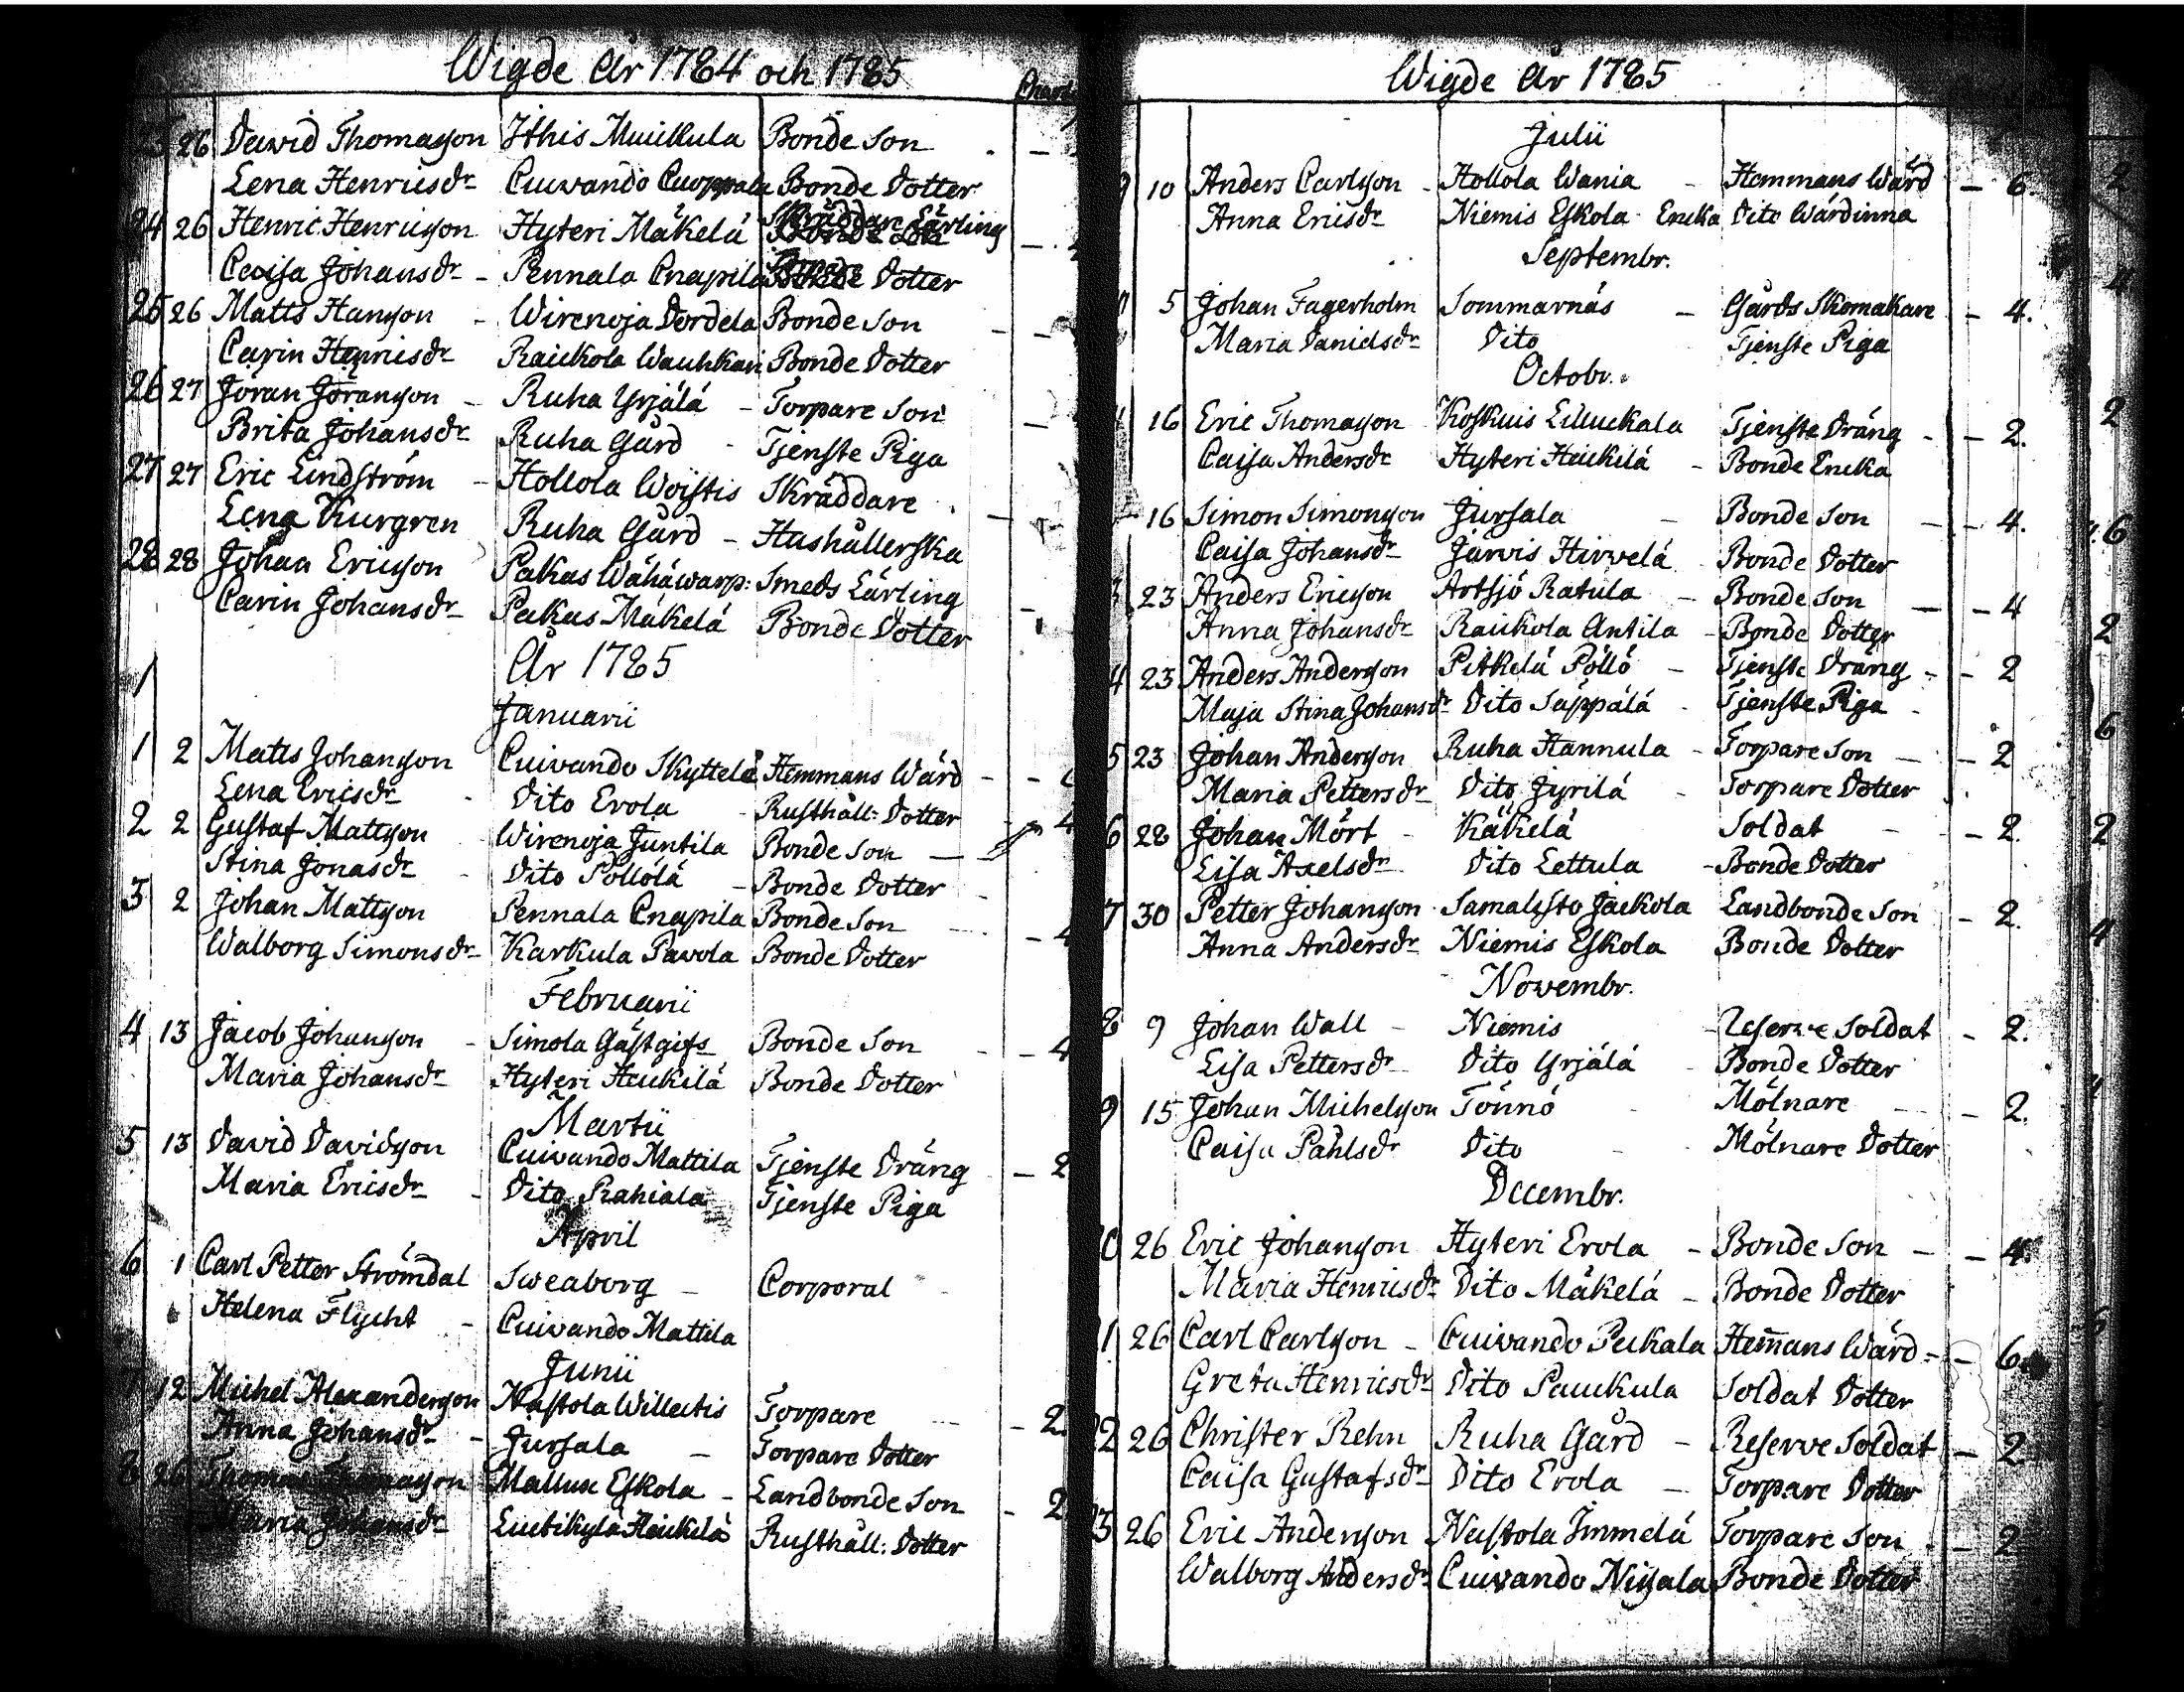 Wigde År 1784 och 1785
23 26 David Thomasson Ithis Muikkula Bonde Son
Lena Henricsdr Cuivando Cuoppala Bonde Dotter
24 26 Henric Henricsson Hyteri Mäkelä Skräddare Lärling
Caisa Johansdr Pennala Cnapila Dotter
25 26 Matts Hansson Wirenoja Bonde Son
Carin Henricsdr Raickola Wauhkari Bonde Dotter
26 27 Jöran Jöransson Ruha Yrjälä Torpare Son
Brita Johansdr Ruha Gård Tjenste Piga
27 27 Eric Lindström Hollola Woistis Skräddare
Lena Kurgren Ruha Gård Hushållerska
28 28 Johan Ericsson Pakas Wähäwarp: Smeds Lärling
Carin Johansdr Pakas Mäkelä Bonde Dotter
År 1785
1
Januarii
1 2 Matts Johansson Cuivando Skyttelä Hemmans Wärd
Lena Ericsdr Dito Erola Rusthåll: Dotter
2 2 Gustaf Mattsson Wirenoja Juntila Bonde Son 4
Stina Jonasdr Dito Pöllölä Bonde Dotter
3 2 Johan Mattsson Pennala Cnapila Bonde Son 4
Walborg Simonsdr Karkula Pavola Bonde Dotter
Februarii
4 13 Jacob Johansson Simola Gästgifs Bonde Son 4
Maria Johansdr Hyteri Heickilä Bonde Dotter
Martii
5 13 David Davidsson Cuivando Mattila Tjenste Dräng 2
Maria Ericsdr Dito Rahiala Tjenste Piga
April
6 1 Carl Petter Strömdal Sweaborg Corporal
Helena Flycht Cuivando Mattila
Junii
7 12 Michel Alexandersson Nastola Willectis Torpare 2
Anna Johansdr Jursala Torpare Dotter
8 26 Thomas Thomasson Mallux Eskola Landbonde Son 2
Maria Johansdr Luttikylä Heickelä Rusthåll: Dotter
Wigde År 1785
Julii
9 10 Anders Carlsson Hollola Wania Hemmans Wärd 6
Anna Ericsdr Niemis Eskola Encka Dito Wärdinna
Septembr.
5 Johan Fagerholm Sommarnäs Gårds Skomakare 4.
Maria Danielsdr Dito Tjenste Piga
Octobr.
16 Eric Thomasson Koskuis Lilluckala Tjenste Dräng 2.
Caisa Andersdr Hyteri Heickilä Bonde Encka
16 Simon Simonsson Jursala Bonde Son 4.
Caisa Johansdr Järvis Hirvelä Bonde Dotter
23 Anders Ericsson Artsjö Ratula Bonde Son 4
Anna Johansdr Raickola Antila Bonde Dotter
4 23 Anders Andersson Pitkelä Pöllö Tjenste Dräng 2
Maja Stina Johansdr Dito Säppälä Tjenste Piga
5 23 Johan Andersson Ruha Hannula Torpare Son 2
Maria Pettersdr Dito Jyrilä Torpare Dotter
6 28 Johan Mört Käkelä Soldat 2.
Lisa Axelsdr Dito Lettula Bonde Dotter
7 30 Petter Johansson Samalisto Jäckola Landbonde Son 2.
Anna Andersdr Niemis Eskola Bonde Dotter
Novembr.
8 9 Johan Wall Niemis Reserve Soldat 2.
Lisa Pettersdr Dito Yrjälä Bonde Dotter
9 15 Johan Michelsson Tönnö Mölnare 2.
Caisa Påhlsdr Dito Mölnare Dotter
Decembr.
0 26 Eric Johansson Hyteri Erola Bonde Son 4.
Maria Henricsdr Dito Mäkelä Bonde Dotter
1 26 Carl Carlsson Cuivando Peckala Hem̄ans Wärd 6.
Greta Henricsdr Dito Pauckula Soldat Dotter
22 26 Christer Rehn Ruha Gård Reserve Soldat 2
Caisa Gustafsdr Dito Erola Torpare Dotter
3 26 Eric Andersson Nastola Immelä Torpare Son 2
Walborg Andersdr Cuivando Nissala Bonde Dotter